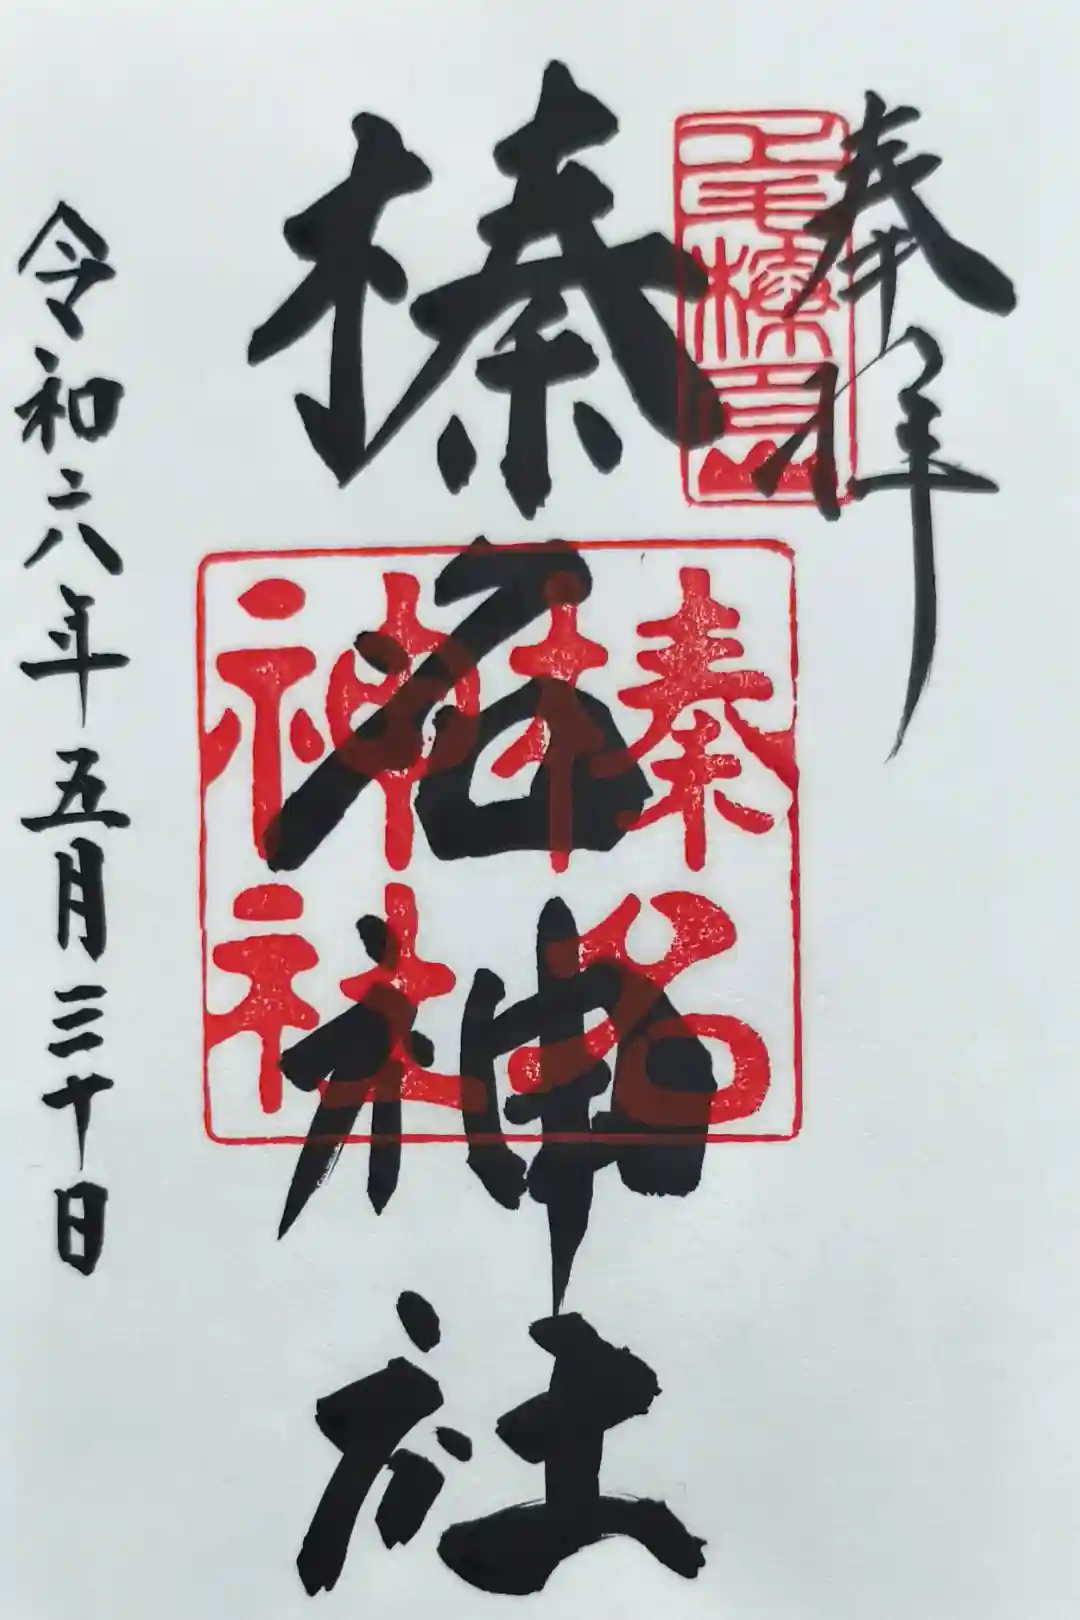 奉拝
上毛榛名山
榛名神社
榛名
神社
令和六年五月三十日